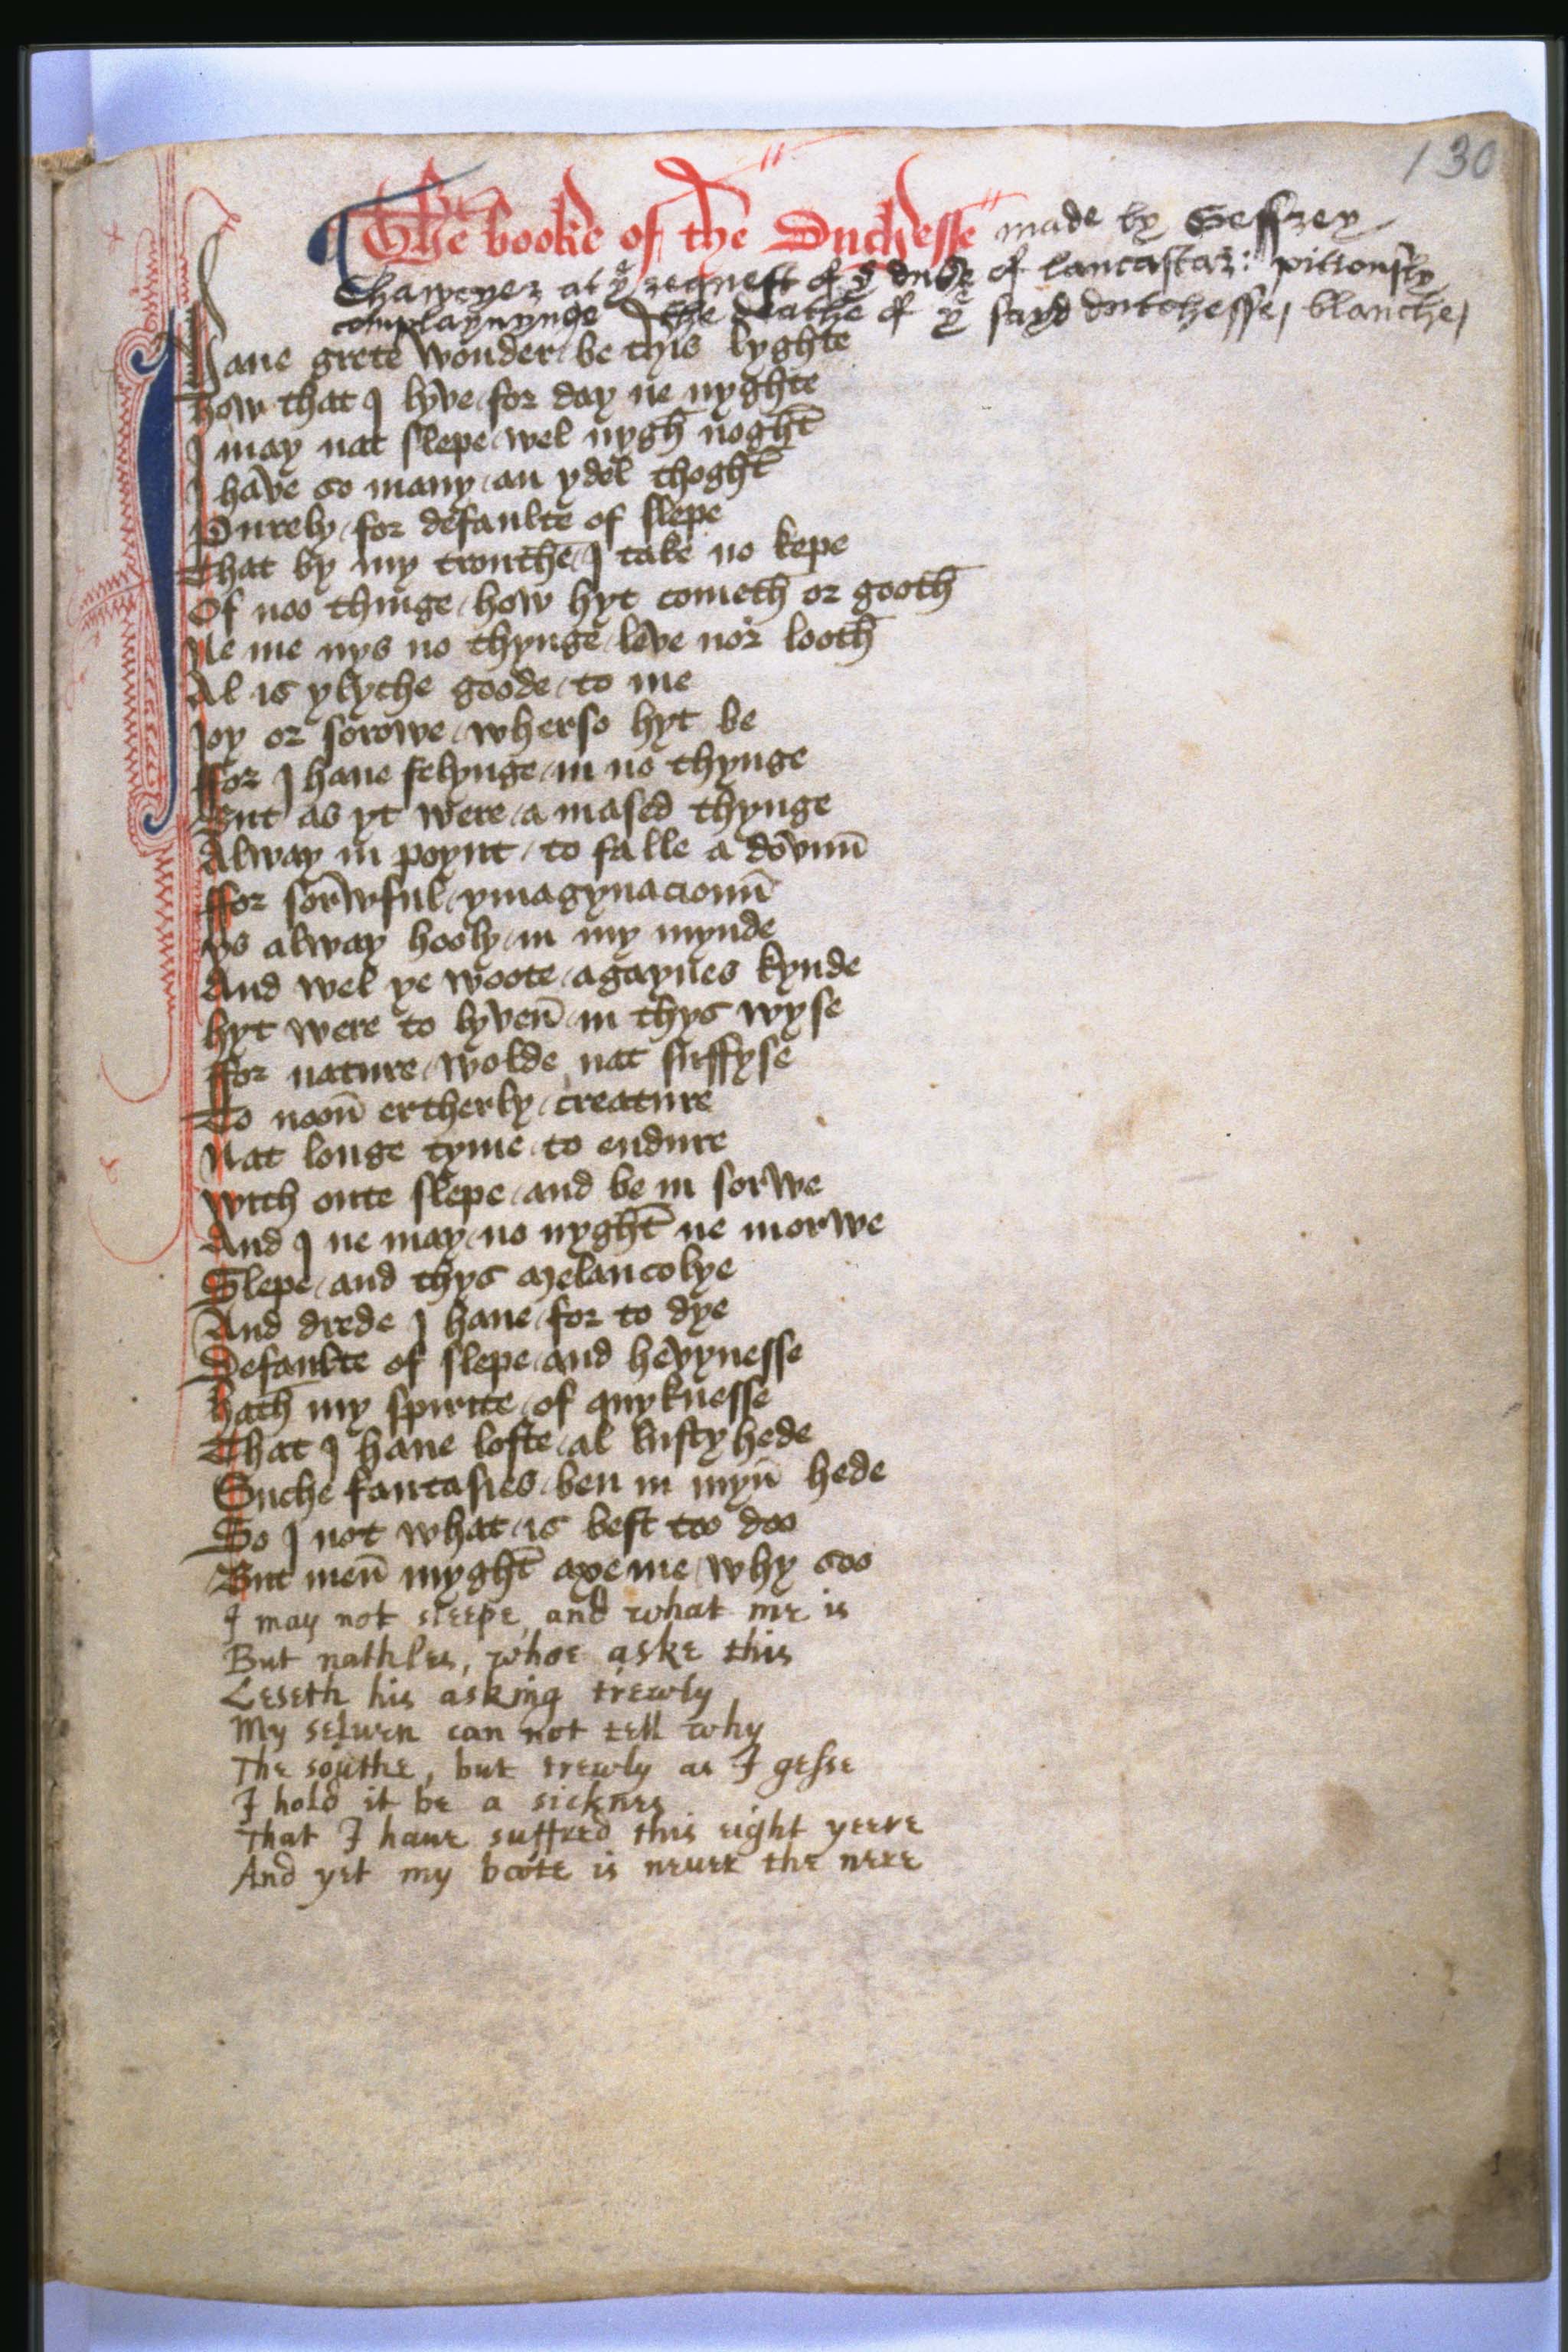 130
The booke of the Duchesse made by Geffrey
Chawcyer at yᵉ request of yᵉ duke of lancastar: pittously
complaynynge the deathe of yᵉ sayd dutchesse, blanche,
I Haue grete wonder be this lyghte
How that I lyve for day ne nyghte
I may nat slepe wel nygh noght
I have so many an ydel thoght
Purely for defaulte of slepe
That by my trouthe I take no kepe
Of noo thinge how hyt cometh or gooth
Ne me nys no thynge leve nor looth
Al is ylyche goode to me
Joy or sorowe wherso hyt be
ffor I haue felynge in no thynge
But as yt were a mased thynge
Alway in poynt to falle a dovun̄
ffor sorwful ymagynacioun̄
ys alway hooly in my mynde
And wel ye woote agaynes kynde
hyt were to lyven̄ in thys wyse
ffor nature wolde nat suffyse
To noon̄ ertherly creature
Nat longe tyme to endure
with oute slepe and be in sorwe
And I ne may no nyght ne morwe
Slepe and thys Melancolye
And drede I haue for to dye
Defaulte of slepe and hevynesse
hath my spirite of quyknesse
That I haue loste al lustyhede
Suche fantasies ben in myn̄ hede
So I not what is best too doo
But men̄ myght axe me why soo
I may not sleepe, and what me is
But nathles, whoe aske this
Leseth his asking trewly
My seluen can not tell why
The southe, but trewly as I gesse
I hold it be a sicknes
That I haue suffred this eight yeere
And yet my boote is neuer the nere
1